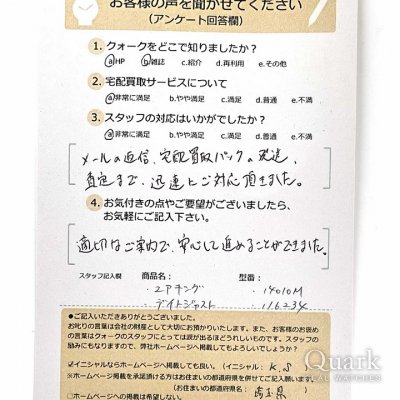 お客様の声を聞かせてください
(アンケート回答欄)
1. クォークをどこで知りましたか?
a.HP b.雑誌 c.紹介 d.再利用 e.その他
2. 宅配買取サービスについて
a.非常に満足 b.やや満足 c.満足 d.普通 e.不満
3. スタッフの対応はいかがでしたか?
a.非常に満足 b.やや満足 c.満足 d.普通 e.不満
メールの返信、宅配買取パックの発送、
査定まで、迅速にご対応頂きました。
4. お気付きの点やご要望がございましたら、
お気軽にご記入下さい。
適切なご案内で、安心して進めることができました。
スタッフ記入欄 商品名: 型番:
・2Pキング ・14010M
・デイトジャスト ・116234
●ご記入いただきありがとうございました。
お叱りの言葉は会社の財産として大切にお預かりいたします。また、お客様のお褒め
の言葉はクォークのスタッフにとっては涙が出るほどうれしいものです。スタッフの
励みにもなりますので、弊社ホームページへ掲載してもよろしいでしょうか?
☑イニシャルならホームページへ掲載しても良い。(イニシャル: K.S )
※ホームページへ掲載を承諾頂ける方はお住まいの都道府県を併せてご記入願います。
(お住まいの都道府県名: 埼玉県 )
□ホームページへの掲載は希望しない。
Quark